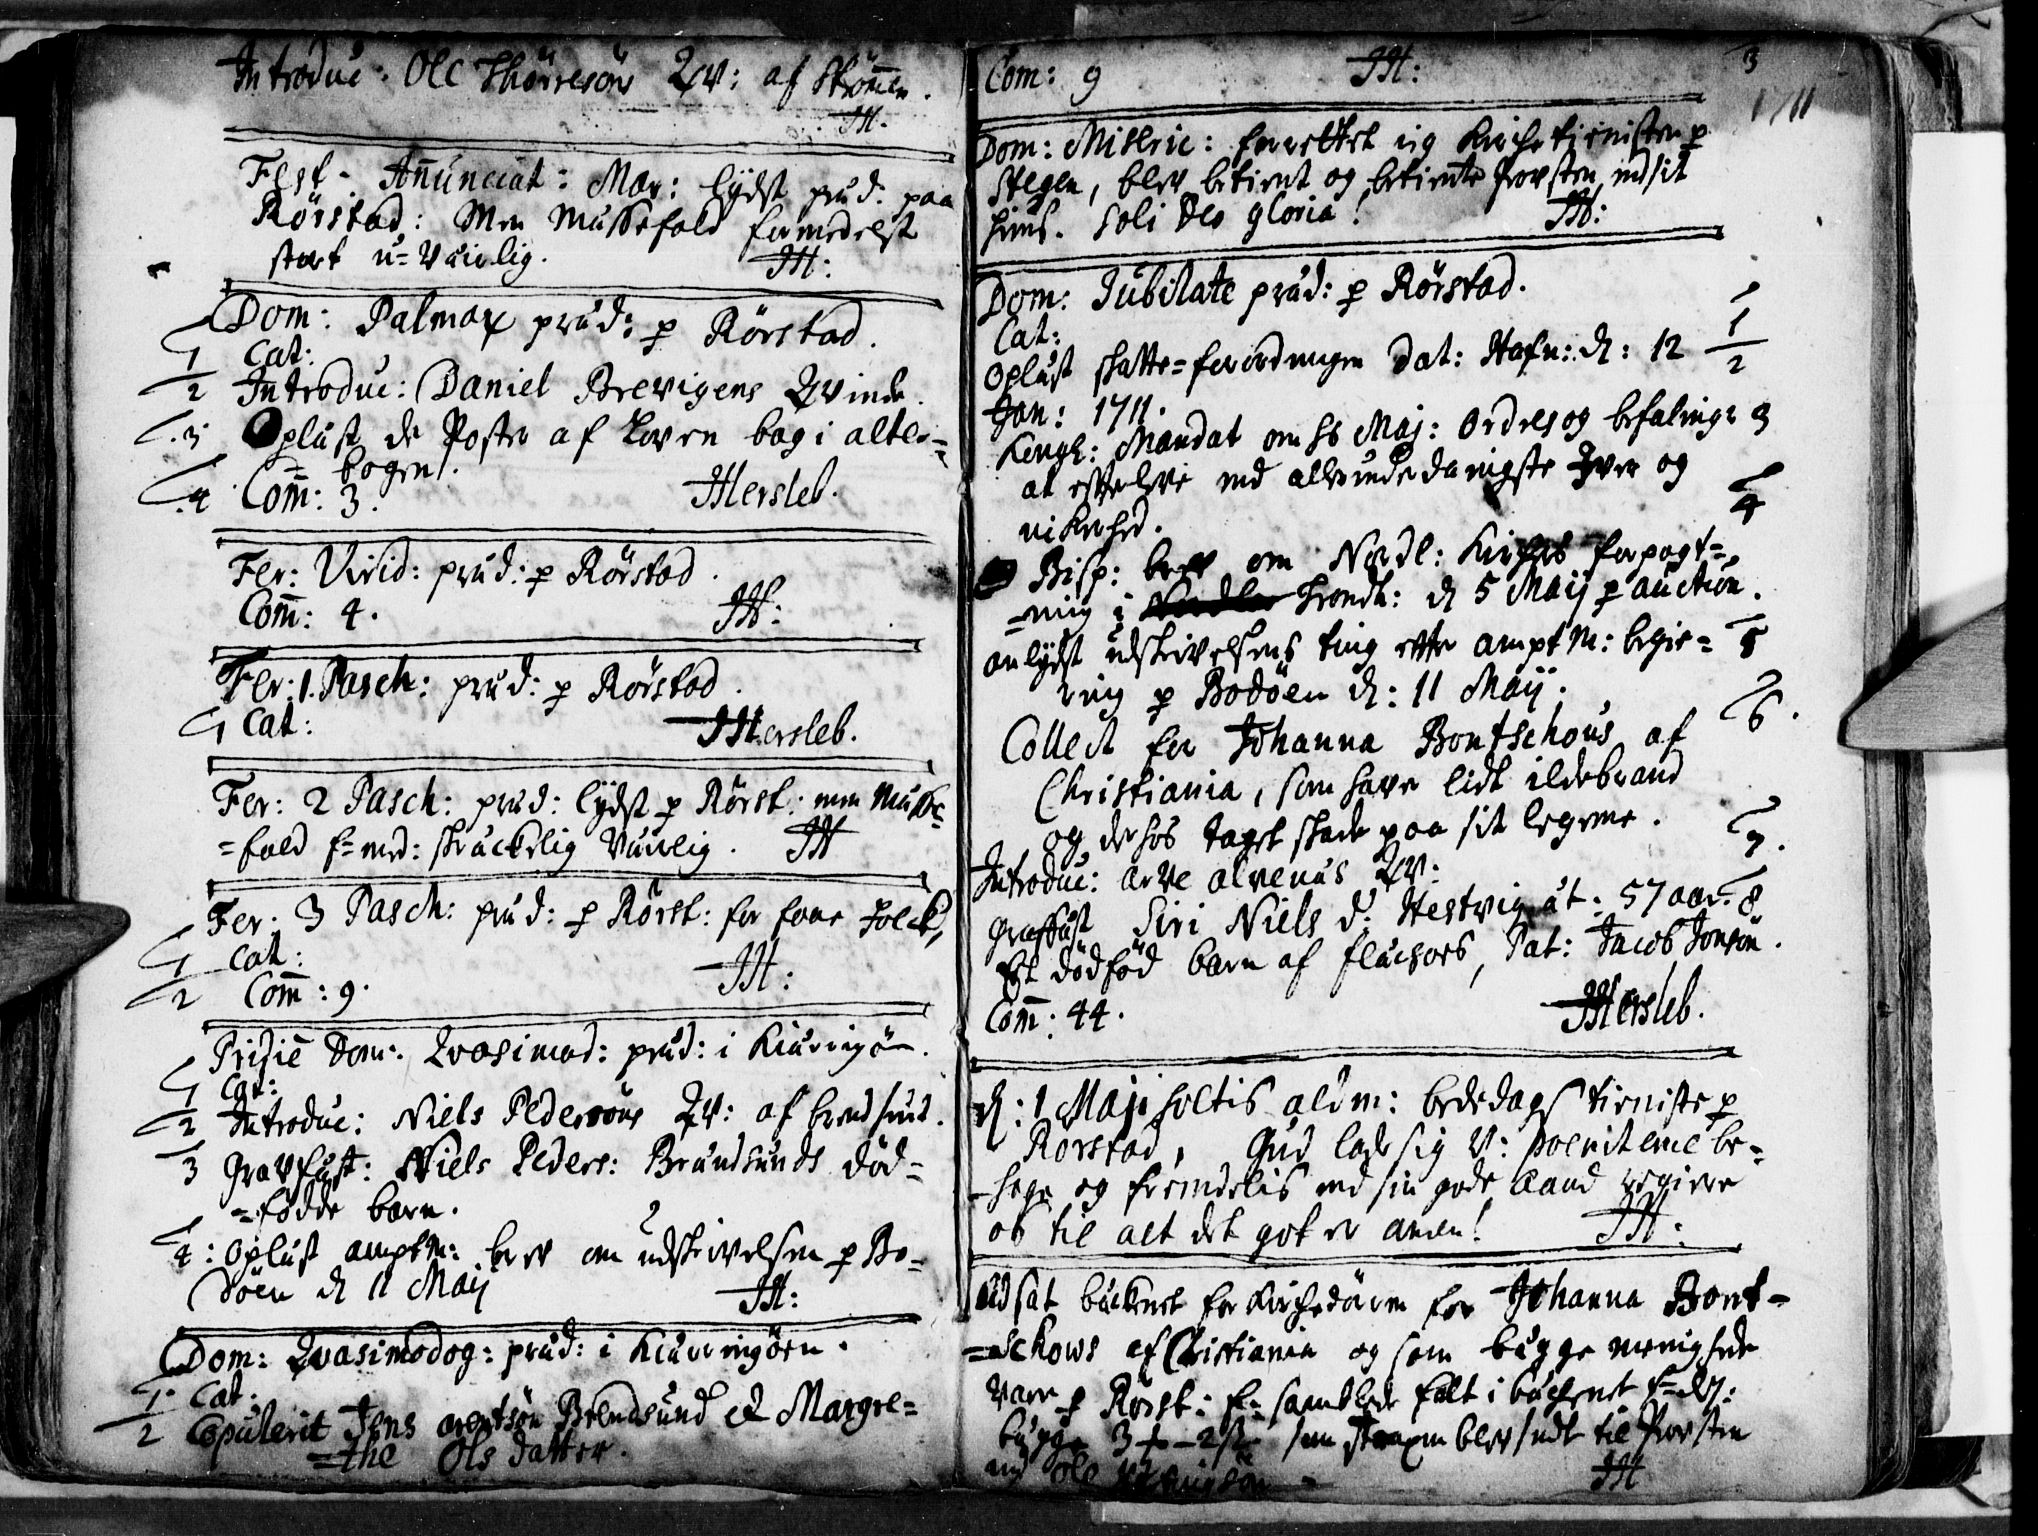 Introduc: Ole Thorresöns Qv: af Strömen.
JH.
Fest. Añunciat: Mar: lydst præd: paa
Rörstad: Men Mussefald formedelst
stort u-Vairlig. JH:
Dom: Palmar præd: p Rörstad.
1 Cat:
2 Introduc: Daniel Brevigens Qvinde.
3 Oplust de Poster af Loven bag i alter-
= bogen.
4 Com̃: 3. JHersleb.
Fer: Virid: præd: p Rörstad.
Com̃: 4. JH:
Fer: 1. Pasch: præd: p Rörstad.
1 Cat: JHersleb.
Fer: 2 Pasch: præd: lydst p Rörst: men Musse-
=fald f=med: skräckelig Vairlig. JH
Fer: 3 Pasch: præd: p Rörst: for faae Folck,
1 Cat:
2 Com̃: 9. JH:
Pridie Dom: Qvasimod: præd: i Kiærringöen.
1 Cat:
2 Introduc: Niels Pedersöns Qv: af Brendsund.
3 Gravfæst: Niels Peders: Brændsunds död-
=födde barn.
4: Oplust amptm: brev om udskrivelsen p Bo-
döen d 11 Maij JH:
Dom: Qvasimodog: præd: i Kiærringöen.
1. Cat.
2 Copulerit Jens arentsön Brendsund & Margre-
=the Ols datter.
Com: 9 JH:
3
1711
Dom: Miseric: forrettet ieg Kirche tienisten p
Stegen, blev betient og betiente Provsten ved sit
huus. Soli Deo gloria! JH:
Dom: Jubilate præd: p Rörstad.
Cat: 1
Oplust skatte-forordningen Dat: Hafn: d: 12 2
Jan: 1711.
Kongl: Mandat om hs Maj: Ordres og befalinge 3
at efterleve med allerunderdanigste Iver og
nidkierhed. 4
Bisp: brev om Nordl: Kirchers forpagt-
=ning i Trondh: d 5 Maij p auction.
anlydst udskrivelsens ting efter amptm: begie- 5
ring p Bodöen d: 11 Maij.
Collect for Johanna Bontschous af 6.
Christiania, som haver lidt ildebrand
og derhos taget skade paa sit legeme.
Introduc: arve alvenæs Qv: 7.
Graffæst Siri Niels d: Hestvig æt: 57 aar. 8
Et dödföd barn af , Pat: Jacob Jonsön.
Com̃: 44. JHersleb.
d: 1 Maji holtis alm: bededags tieniste p
Rörstad, Gud lade sig V: poenitence be-
-hage og fremdelis med sin gode Aand regiere
os til alt det got er amen! JH:
Udsat bæckenet for Kirchedören for Johanna Bont-
=schows af Christiania og som begge menighede
vare p Rörst: samlede falt i bæckenet
begge 3 som blev sendt til Provsten
med Ole
JH